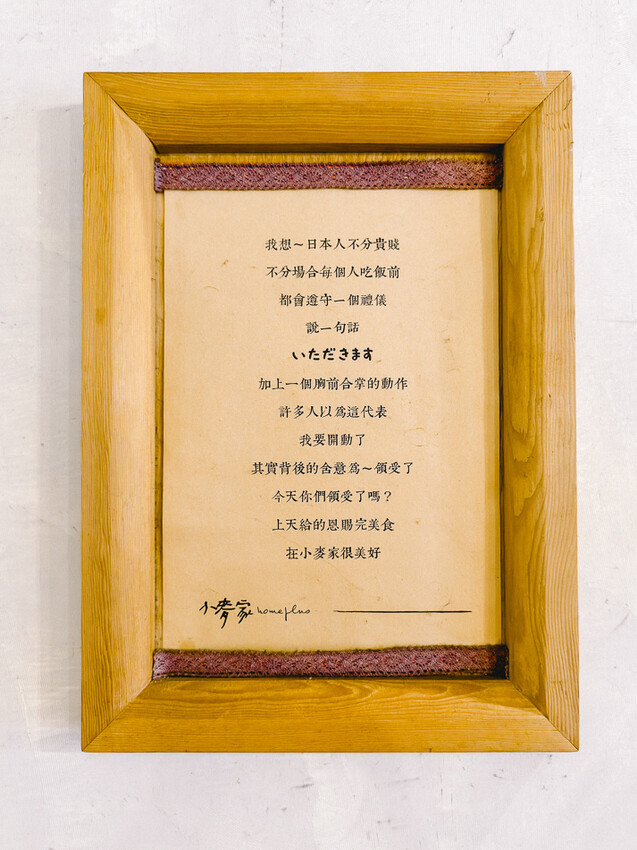 我想～日本人不分貴賤
不分場合每個人吃飯前
都會遵守一個禮儀
說一句話
いただきます
加上一個胸前合掌的動作
許多人以為這代表
我要開動了
其實背後的含意為～領受了
今天你們領受了嗎？
上天給的恩賜完美食
在小麥家很美好
小麥家 homeplus